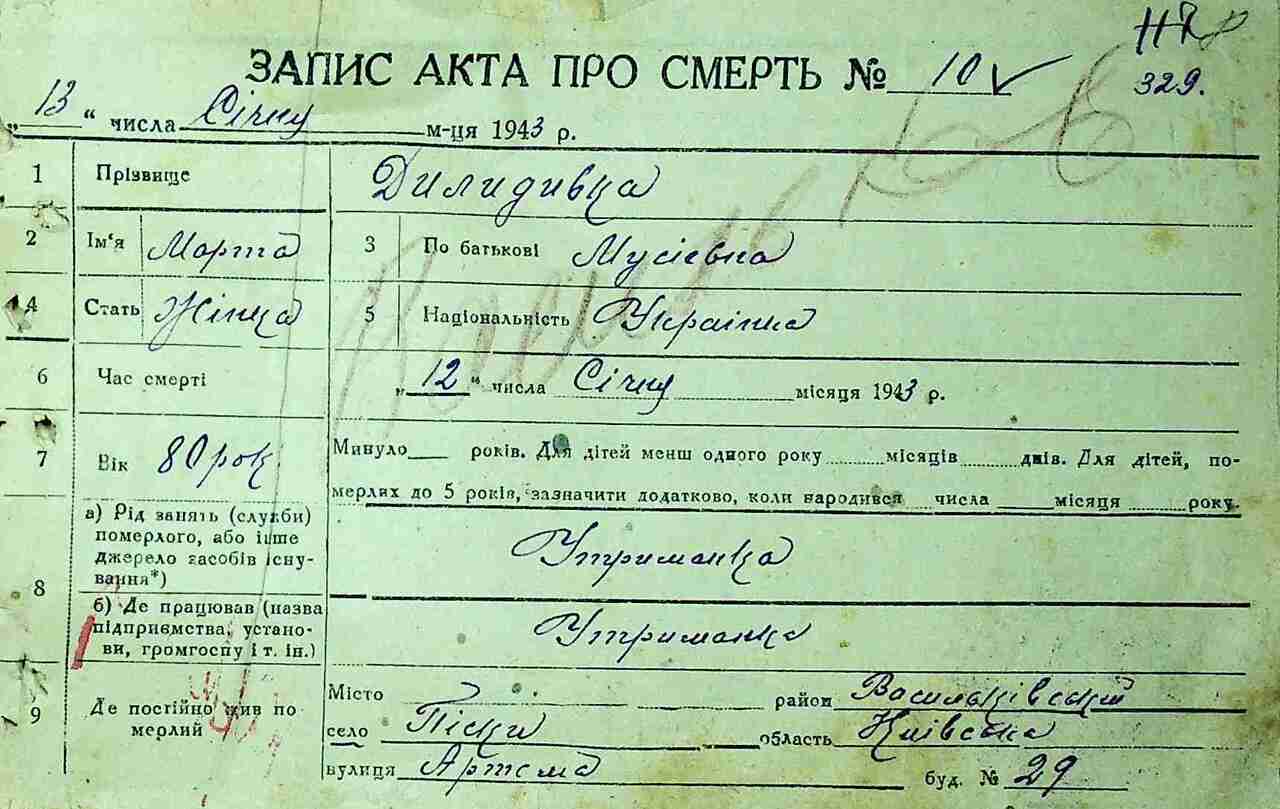 329.
ЗАПИС АКТА ПРО СМЕРТЬ № 10
„13“ числа Січну м-ця 1943 р.
1 Прізвище Дилидивка
2 Ім'я Марта 3 По батькові Мусіевна
4 Стать Жінка 5 Національність Українка
6 Час смерті „12“ числа Січну місяця 1943 р.
7 Вік 80 рок Минуло років. Для дітей менш одного року місяців днів. Для дітей, по-
мерлих до 5 років, зазначити додатково, коли народився числа місяця року.
8 а) Рід занять (служби)
померлого, або інше
джерело засобів існу-
вання*) Утриманка
б) Де працював (назва
підприємства, устано-
ви, громгоспу і т. ін.) Утриманка
9 Де постійно жив по
мерлий
Місто район Васильківський
село Піски область Київська
вулиця Артема буд. № 29